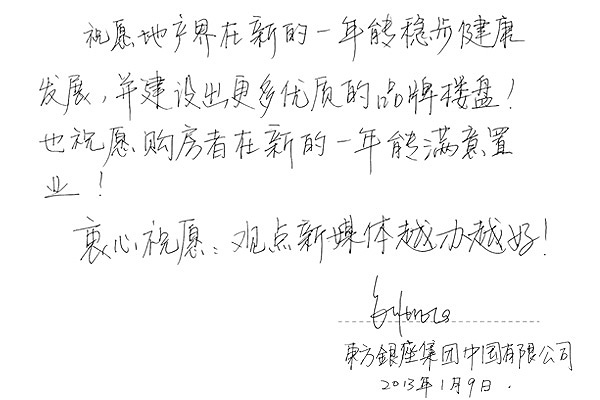 祝愿地产界在新的一年能稳步健康
发展，并建设出更多优质的品牌楼盘！
也祝愿购房者在新的一年能满意置
业！
衷心祝愿：观点新媒体越办越好！
東方銀座集团中国有限公司
2013年1月9日.